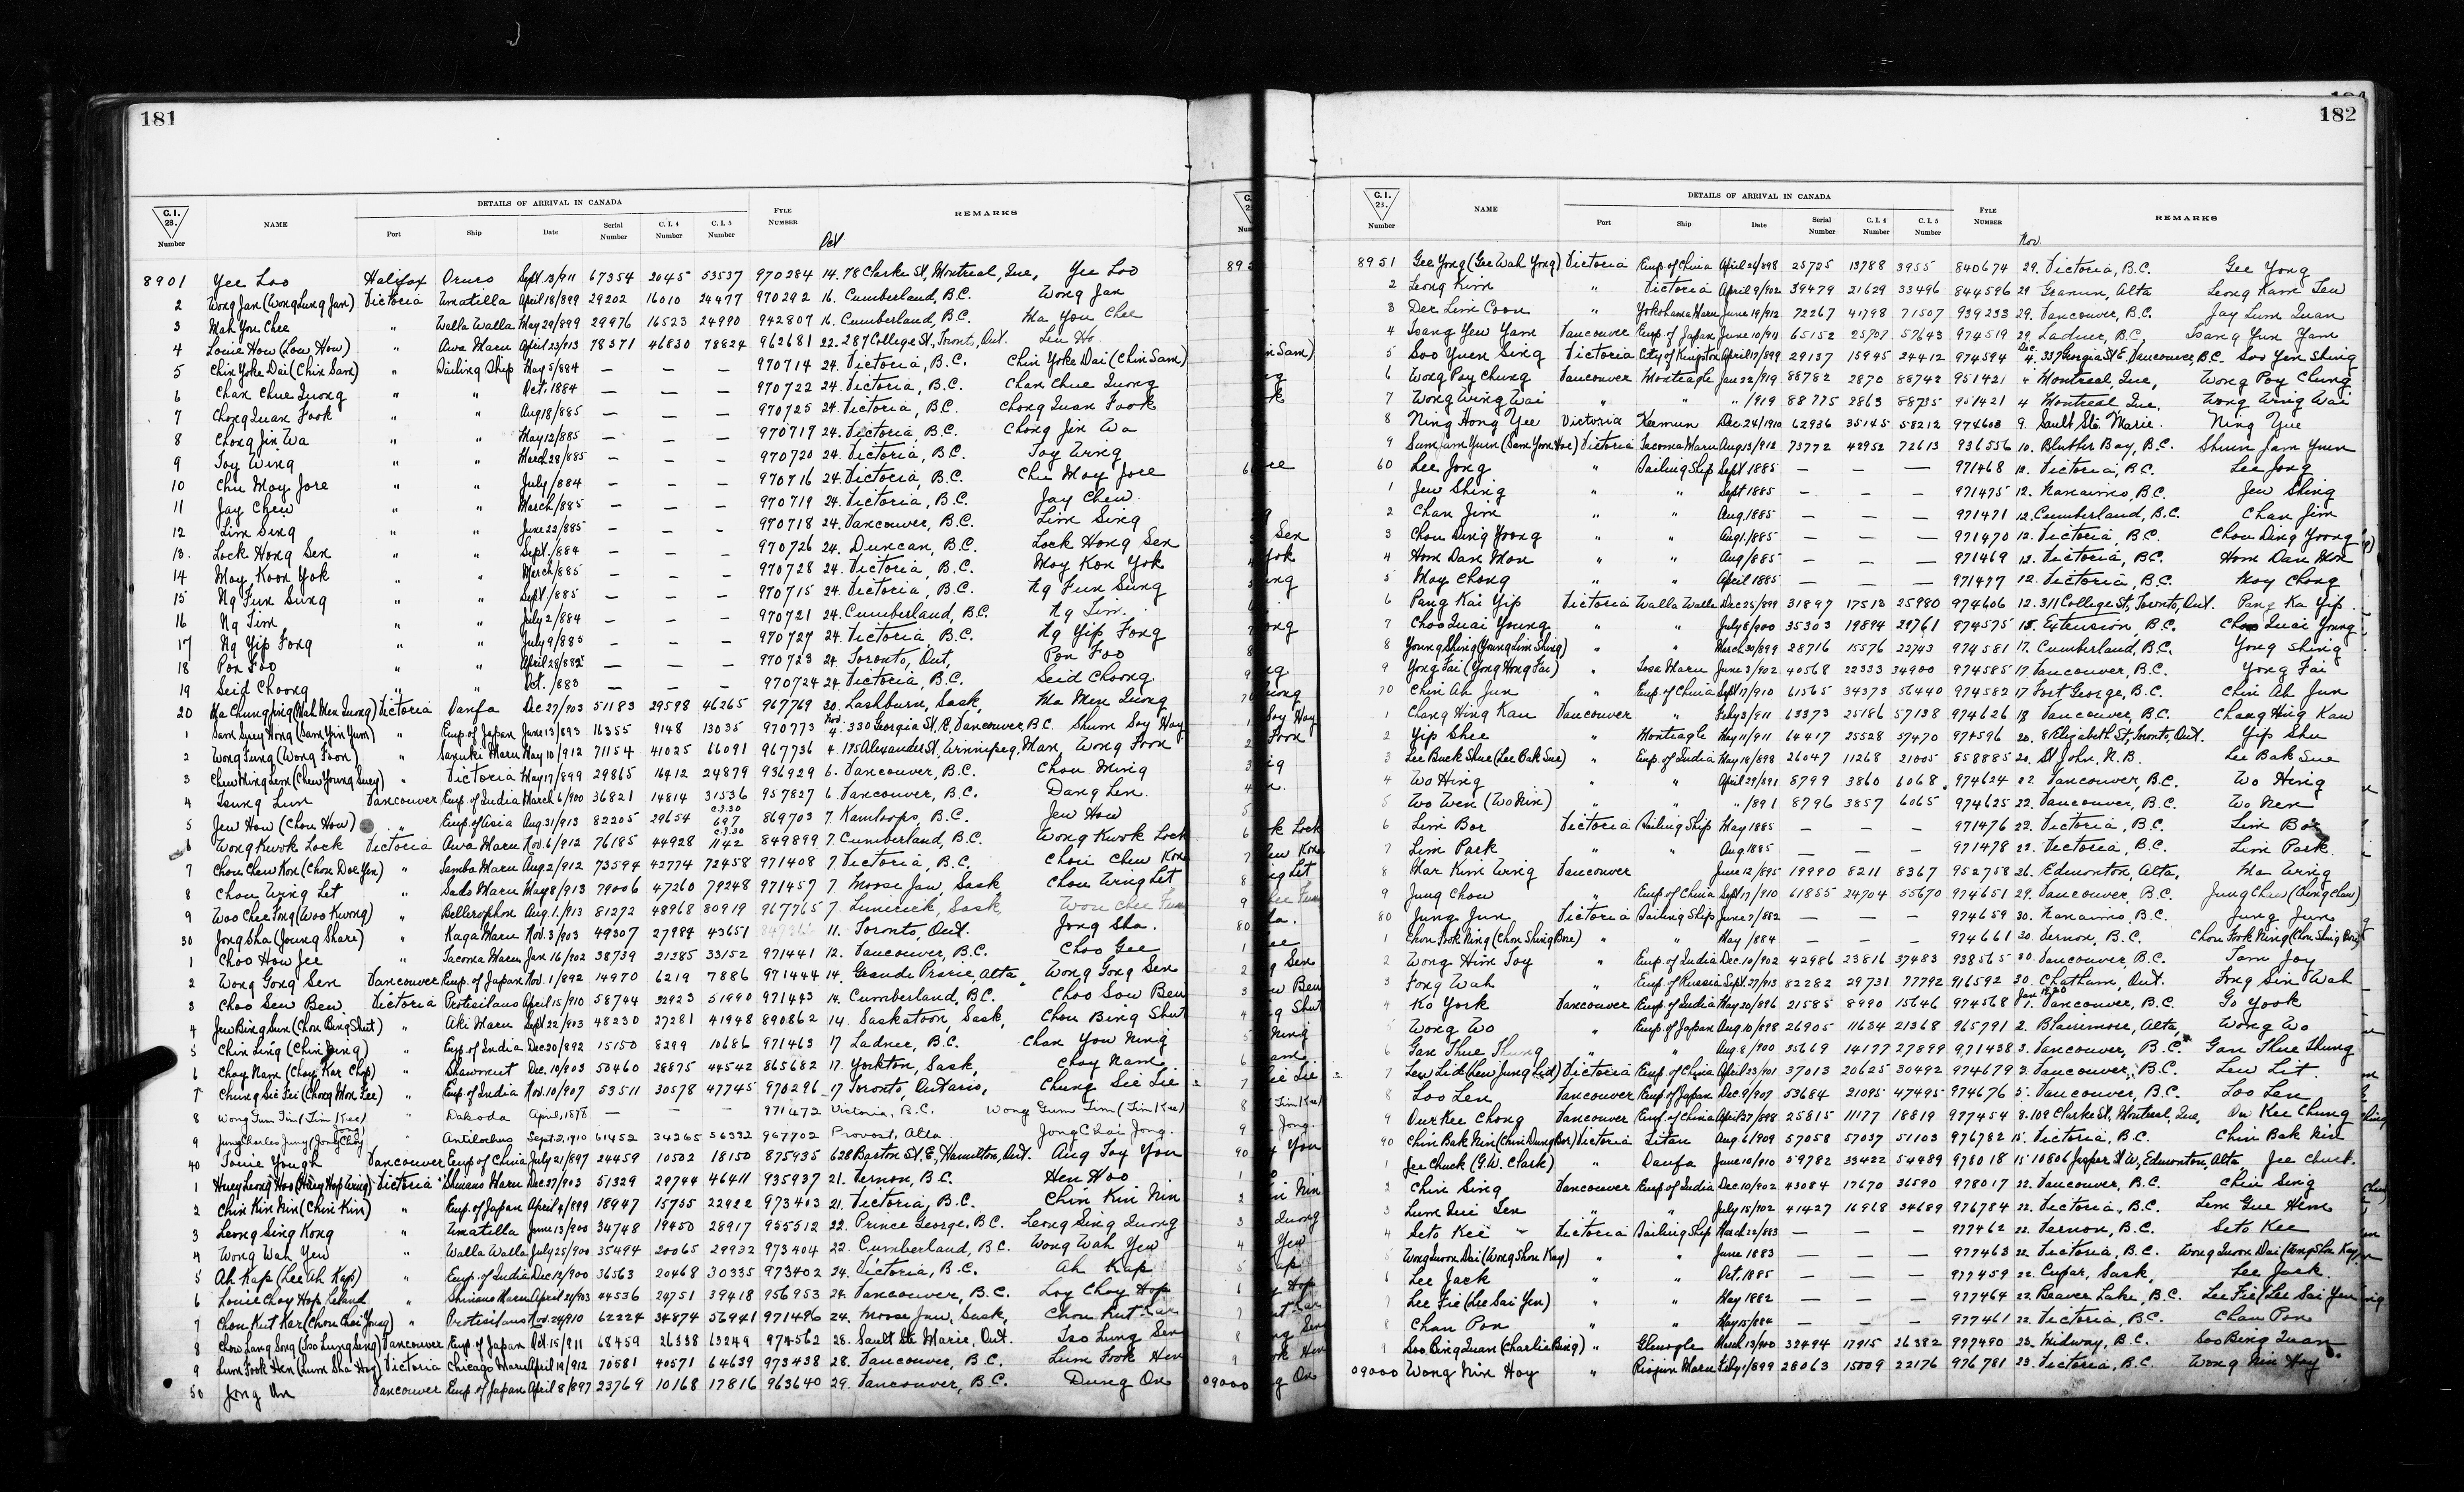 181
C.I. 28. Number
NAME
DETAILS OF ARRIVAL IN CANADA
Port Ship Date Serial Number C.I. 4 Number C.I. 5 Number
FYLE NUMBER
REMARKS
Oct
8901 Yee Loo Halifax Oruro Sept 13/911 67354 2045 53537 970284 14. 78 Clarke St, Montreal, Que, Yee Loo
2 Wong Jan (Wong Lung Jan) Victoria Umatilla April 18/899 29202 16010 24477 970292 16. Cumberland, B.C. Wong Jan
3 Mah You Chee " Walla Walla May 29/899 29976 16523 24990 942807 16. Cumberland, B.C. Ma You Chee
4 Louie How (Lou How) " Awa Maru April 23/913 78371 46830 78824 962681 22. 287 College St, Toronto, Ont. Leu Ho
5 Chin Yoke Dai (Chin Sam) " Sailing Ship May 5/884 — — — 970714 24. Victoria, B.C. Chin Yoke Dai (Chin Sam)
6 Chan Chue Quong " " Oct. 1884 — — — 970722 24. Victoria, B.C. Chan Chue Quong
7 Chong Quan Fook " " Aug 18/885 — — — 970725 24. Victoria, B.C. Chong Quan Fook
8 Chong Jin Wa " " May 12/885 — — — 970717 24. Victoria, B.C. Chong Jin Wa
9 Toy Wing " " March 28/885 — — — 970720 24. Victoria, B.C. Toy Wing
10 Chu May Jore " " July/884 — — — 970716 24. Victoria, B.C. Chu May Jore
11 Jay Chew " " March/885 — — — 970719 24. Victoria, B.C. Jay Chew
12 Lim Sing " " June 22/885 — — — 970718 24. Vancouver, B.C. Lim Sing
13. Lock Hong Sen " " Sept. /884 — — — 970726 24. Duncan, B.C. Lock Hong Sen
14 May Koon Yok " " March/885 — — — 970728 24. Victoria, B.C. May Kon Yok
15 Ng Fun Sung " " Sept. /885 — — — 970715 24. Victoria, B.C. Ng Fun Sung
16 Ng Tim " " July 2/884 — — — 970721 24. Cumberland, B.C. Ng Tim.
17 Ng Yip Fong " " July 9/885 — — — 970727 24. Victoria B.C. Ng Yip Fong
18 Pon Foo " " April 28/882 — — — 970723 24. Toronto, Ont, Pon Foo
19 Seid Choong " " Oct. /883 — — — 970724 24. Victoria, B.C. Seid Choong
20 Ma Chung Jing (Mah Men Quong) Victoria Danfa Dec 27/903 51183 29598 46265 967769 30. Lashburn, Sask, Ma Men Quong
1 Sam Suey Hong (Sam Yin Yum) " Emp. of Japan June 13/893 16355 9148 13035 970773 Nov. 4. 330 Georgia St. E, Vancouver, B.C. Shum Soy Hay
2 Wong Fung (Wong Foon) " Sanuki Maru May 10/912 71154 41025 66091 967736 4. 175 Alexander St, Winnipeg, Man, Wong Foon
3 Chew Ming Lem (Chew Young Suey) " Victoria May 17/899 29865 16412 24879 936929 6. Vancouver, B.C. Chou Ming
4 Teung Lun Vancouver Emp. of India March 6/900 36821 14814 31536 957827 6. Vancouver, B.C. Dang Len.
5 Jew How (Chou How) " Emp. of Asia Aug. 31/913 82205 29654 C.I.30 697 869703 7. Kamloops, B.C. Jew How
6 Wong Kwok Lock Victoria Awa Maru Nov. 6/912 76185 44928 C.I.30 1142 849899 7. Cumberland, B.C. Wong Kwok Lock
7 Chou Chew Kon (Chou Doe Yen) " Tamba Maru Aug. 2/912 73594 42774 72458 971408 7. Victoria, B.C, Chou Chew Kon
8 Chou Wing Let " Sado Maru May 8/913 79006 47260 79248 971457 7. Moose Jaw, Sask, Chou Wing Let
9 Woo Chee Fong (Woo Kwong) " Bellerophon Aug. 1. /913 81272 48968 80919 967765 7. Limerick, Sask,
30 Jong Sha (Joung Share) " Kaga Maru Nov. 3/903 49307 27984 43651 11. Toronto, Ont. Jong Sha.
1 Choo How Jee " Tacoma Maru Jan 16/902 38739 21285 33152 971441 12. Vancouver, B.C. Choo Gee
2 Wong Gong Sen Vancouver Emp. of Japan Nov. 1/892 14970 6219 7886 971444 14. Grande Prarie, Alta. Wong Gong Sen
3 Choo Sew Ben. Victoria Protisilaus April 15/910 58744 32923 51990 971443 14. Cumberland, B.C. Choo Sow Ben
4 Jew Bing Sun (Chou Bing Shut) " Aki Maru Sept 22/903 48230 27281 41948 890862 14. Saskatoon, Sask, Chou Bing Shut
5 Chin Ling (Chin Ning) " Emp. of India Dec 20/892 15150 8299 10686 971463 17 Ladner, B.C. Chan You Ning
6 Chay Nam (Chay Kar Chp) " Shawmut Dec. 10/903 50460 28875 44542 865682 17. Yorkton, Sask, Chay Nam.
7 Chung Sie Fei (Chong Mon Lee) " Emp. of India Nov. 10/907 53511 30578 47745 970296 17 Toronto, Ontario, Chung Sie Lie
8 Wong Gum Tim (Tim Kee) " Dakoda April, 1878 — — — 971472 Victoria, B.C. Wong Gum Tim (Tim Kee)
9 Jung Charles Juny (Jong Choy Jong) " Antilochus Sept. 2, 1910 61452 34265 56332 967702 Provost, Alta. Jong Chai Jong.
40 Touie Yough Vancouver Emp of China July 21/897 24459 10502 18150 875935 628 Barton St. E., Hamilton, Ont. Aug Toy You
1 Huey Leong Hoo (Huey Hop Wing) Victoria Shinano Maru Dec 27/903 51329 29744 46411 935937 21. Vernon, B.C. Hen Woo
2 Chin Kin Nin (Chin Kin) " Emp. of Japan April 4/899 18947 15755 22922 973403 21. Victoria, B.C. Chin Kin Nin
3 Leong Sing Kong " Umatilla June 13/900 34748 19450 28917 955512 22. Prince George, B.C. Leong Sing Quong
4 Wong Wah Yew " Walla Walla July 25/900 35494 20065 29932 973404 22. Cumberland, B.C. Wong Wah Yew
5 Ah Kap (Lee Ah Kap) " Emp. of India Dec 12/900 36563 20468 30335 973402 24. Victoria, B.C. Ah Kap
6 Louie Choy Hop, Leland " Shinano Maru April 21/903 44536 24751 39418 956953 24. Vancouver, B.C. Loy Choy Hop
7 Chou Kut Kar (Chou Chai Joung) " Protisilaus Nov. 24/910 62224 34874 56941 971496 24. Moose Jaw, Sask, Chou Kut Kar
8 Chow Lang Song (Tso Lung Seng) Vancouver Emp. of Japan Oct. 15/911 68459 26338 63249 974562 28. Sault Ste Marie, Ont. Tso Lung Sen
9 Lum Fook Hen (Lum Sha Hoy) Victoria Chicago Maru April 19/912 70581 40571 64639 973438 28. Vancouver, B.C. Lum Fook Hen
50 Jong On Vancouver Emp. of Japan April 8/897 23769 10168 17816 963640 29. Vancouver, B.C. Dung On
182
C.I. 28. Number
NAME
DETAILS OF ARRIVAL IN CANADA
Port Ship Date Serial Number C.I. 4 Number C.I. 5 Number
FYLE NUMBER
REMARKS
Nov.
8951 Gee Yong (Gee Wah Yong) Victoria Emp. of China April 26/898 25725 13788 3955 840674 29. Victoria, B.C. Gee Yong
2 Leong Kim " Victoria April 9/902 39479 21629 33496 844596 29 Granum, Alta Leong Kam Tew
3 Der Lim Coon " Yokohama Maru June 19/912 72267 41798 71507 939233 29. Vancouver, B.C. Jay Lum Quan
4 Tsang Yew Yam Vancouver Emp. of Japan June 10/911 65152 25707 57643 974519 29. Ladner, B.C, Tsang Yun Yam
5 Soo Yuen Sing Victoria City of Kingston April 17/899 29137 15945 24412 974594 Dec. 4. 337 Georgia St E. Vancouver, B.C. Soo Yen Shing
6 Wong Poy Chung Vancouver Monteagle Jan 22/919 88782 2870 88742 951421 4 Montreal, Que, Wong Poy Chung
7 Wong Wing Wai " " " /919 88775 2863 88735 951421 4 Montreal Que, Wong Wing Wai
8 Ning Hong Yee Victoria Keemun Dec 24/1910 62936 35145 58212 974603 9. Sault Ste. Marie. Ning Yue
9 Sum am Yum (Sam Yom Hoe) Victoria Tacoma Maru Aug 13/912 73772 42952 72613 936556 10. Bluther Bay, B.C. Shum Jam Yuen
60 Lee Jong " Sailing Ship Sept 1885 — — — 971468 12. Victoria, B.C. Lee Jong
1 Jew Shing " " Sept 1885 — — — 971475 12. Nanaimo, B.C. Jew Shing
2 Chan Jim " " Aug. 1885 — — — 971471 12. Cumberland, B.C. Chan Jim
3 Chou Ding Yoong " " Aug 1. /885 — — — 971470 12. Victoria, B.C. Chou Ding Yoong
4 Hom Dan Mon " " Aug /885 — — — 971469 12. Victoria, B.C. Hom Dan Mon
5 May Chong " " April 1885 — — — 971477 12. Victoria, B.C. May Chong
6 Pang Kai Yip Victoria Walla Walla Dec 25/899 31897 17513 25980 974606 12. 311 College St, Toronto, Ont. Pang Ka Yip
7 Choo Quai Young " " July 8/900 35303 19894 29761 974575 15. Extension, B.C. Choo Quai Young
8 Young Shing (Young Lim Shing) " " March 30/899 28716 15576 22743 974581 17. Cumberland, B.C. Yong Shing
9 Yong Fai (Yong Hong Fai) " Tosa Maru June 3/902 40568 22333 34900 974585 17. Vancouver, B.C. Yong Fai
70 Chin Ah Jun " Emp. of China Sept 17/910 61565 34373 56440 974582 17 Fort George, B.C. Chin Ah Jun
1 Chang Hing Kau Vancouver " Feby 3/911 63373 25186 57138 974626 18 Vancouver, B.C. Chang Hing Kau
2 Yip Shee " Monteagle May 11/911 64417 25528 57470 974596 20. 8 Elizabeth St, Toronto, Ont. Yip Shu
3 Lee Buck Shue (Lee Bak Sue) " Emp. of India May 18/898 26047 11268 21005 858885 20. St John, N.B. Lee Bak Sue
4 Wo Hing " " April 29/891 8799 3860 6068 974624 22 Vancouver, B.C. Wo Hing
5 Wo Wen (Wo Nin) " " " /891 8796 3857 6065 974625 22. Vancouver, B.C. Wo Nen
6 Lim Bor Victoria Sailing Ship May 1885 — — — 971476 22. Victoria, B.C. Lim Bor
7 Lim Park " " Aug 1885 — — — 971478 22. Victoria, B.C. Lim Park.
8 Mar Kim Wing Vancouver June 12/895 19990 8211 8367 952758 26. Edmonton, Alta, Ma Wing
9 Jung Chow " Emp. of China Sept 17/910 61855 24704 55670 974651 29. Vancouver, B.C. Jung Chew (Chung Chew)
80 Jung Jun Victoria Sailing Ship June 7/882 — — — 974659 30. Nanaimo, B.C. Jung Jun
1 Chou Fook Ning (Chou Shing Bore) " " May /884 — — — 974661 30. Vernon, B.C. Chou Fook Ning (Chou Shing Bore)
2 Wong Him Toy " Emp. of India Dec. 10/902 42986 23816 37483 938565 30. Vancouver, B.C. Tam Joy
3 Fong Wah " Emp. of Russia Sept. 27/913 82282 29731 77792 916592 30. Chatham, Ont. Fong Sin Wah
4 Ko York Vancouver Emp. of India May 20/896 21585 8990 15646 974568 Jan 1920 1. Vancouver, B.C. Go Yook
5 Wong Wo " Emp. of Japan Aug. 10/898 26905 11634 21368 965791 2. Blairmore, Alta, Wong Wo
6 Gan Thue Thung " " Aug. 8/900 35669 14177 27899 971438 3. Vancouver, B.C. Gan Thue Thung
7 Lew Lid (Lew Jung Lid) Victoria Emp. of China April 23/901 37013 20625 30492 974679 3. Vancouver, B.C. Lew Lit.
8 Loo Len Vancouver Emp. of Japan Dec. 9/907 53684 21095 47495 974676 5. Vancouver, B.C. Loo Len
9 Our Kee Chong Vancouver Emp. of China April 27/898 25815 11177 18819 977454 8. 109 Clarke St, Montreal, Que, Ou Kee Chung
90 Chin Bak Nin (Chin Dung Bor) Victoria Titan Aug. 6/909 57058 57037 51103 976782 15. Victoria, B.C. Chin Bak Nin
1 Jee Chuck (G.W. Clark) " Danfa June 10/910 59782 33422 54489 978018 15 10806 Jasper St W, Edmonton, Alta Jee Chuck.
2 Chin Sing Vancouver Emp. of India Dec. 10/902 43084 17670 36590 978017 22. Vancouver, B.C. Chin Sing
3 Lum Qui Ten " " July 15/902 41427 16868 34689 976784 22. Victoria, B.C. Lem Gue Hem
4 Seto Kee Victoria Sailing Ship March 22/883 — — — 977462 22. Vernon, B.C. Seto Kee
5 Wong Quon Dai (Wong Shou Kay) " " June 1883 — — — 977463 22. Victoria, B.C. Wong Quon Dai (Wong Shou Kay)
6 Lee Jack " " Oct. 1885 — — — 977459 22. Cupar, Sask, Lee Jack.
7 Lee Fie (Lee Sai Yen) " " May 1882 — — — 977464 22. Beaver Lake, B.C. Lee Fie (Lee Sai Yen
8 Chan Pon " " May 15/884 — — — 977461 22. Victoria, B.C. Chan Pon
9 Soo Bing Quan (Charlie Bing) " Glenogle March 13/900 32494 17915 26382 977490 23. Midway, B.C. Soo Bing Quan
09000 Wong Nin Hoy " Riojun Maru Feby 1/899 28063 15009 22176 976781 23. Victoria, B.C. Wong Nin Hoy